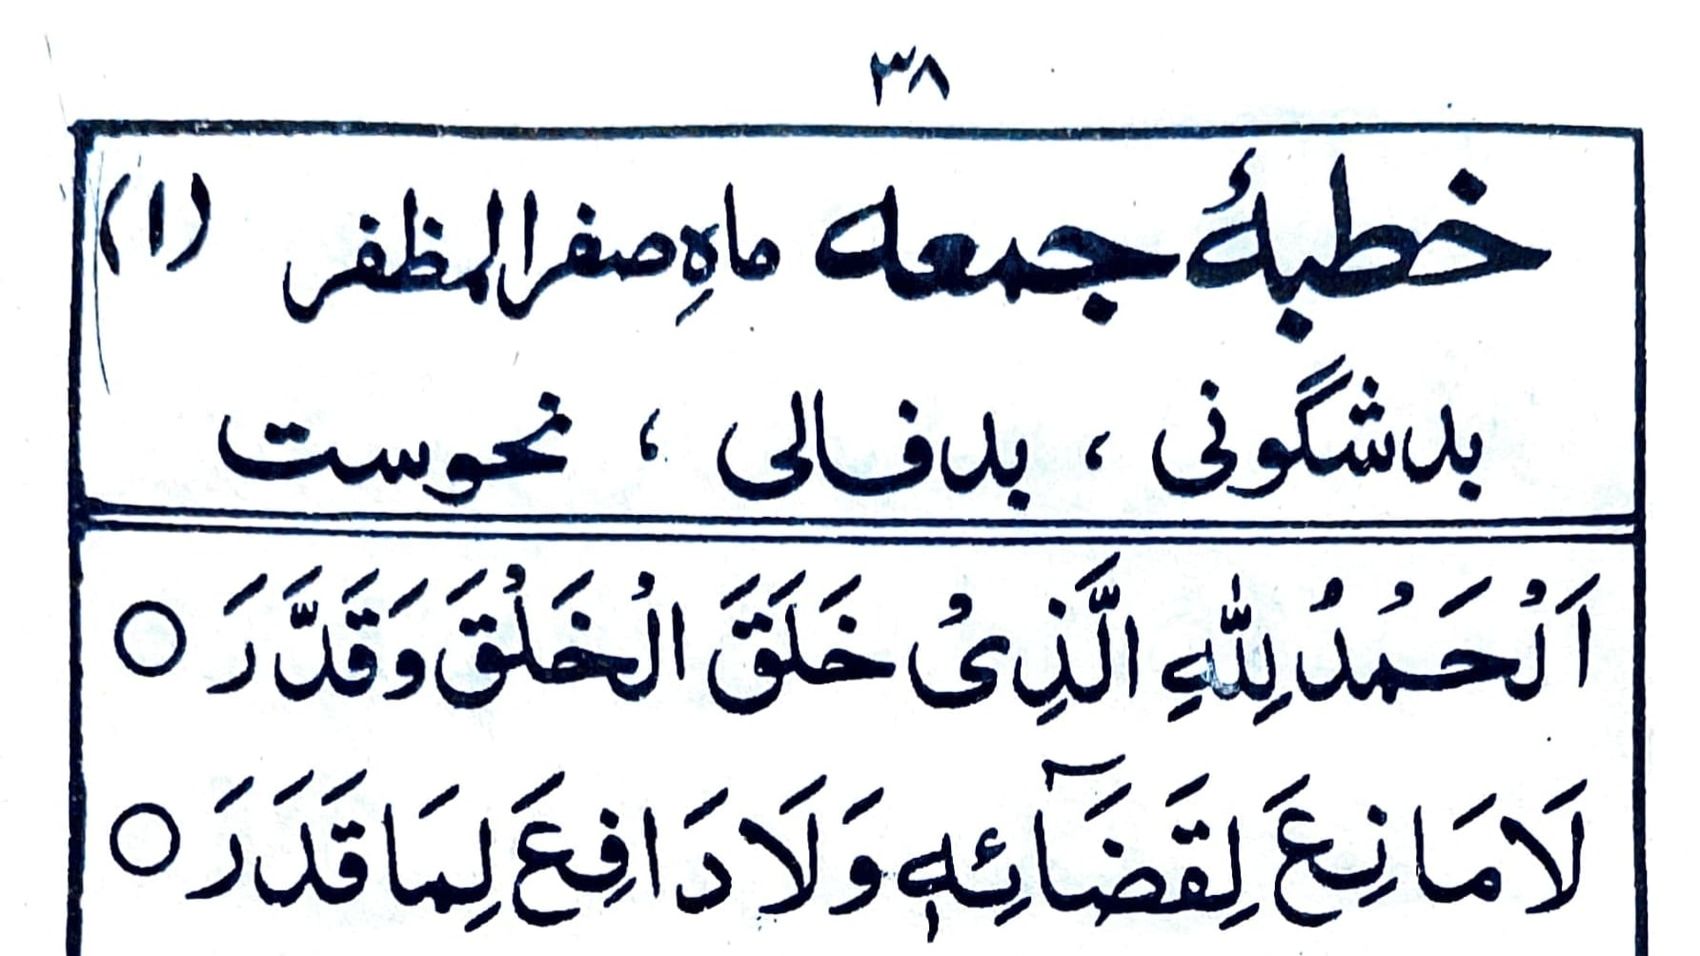 ۳۸
خطبۂ جمعہ ماہِ صفر المظفر (۱)
بدشگونی ، بدفالی ، نحوست
اَلْحَمْدُ لِلّٰهِ الَّذِىْ خَلَقَ الْخَلْقَ وَقَدَّرَ ○
لَا مَانِعَ لِقَضَآئِهٖ وَلَا دَافِعَ لِمَا قَدَرَ ○